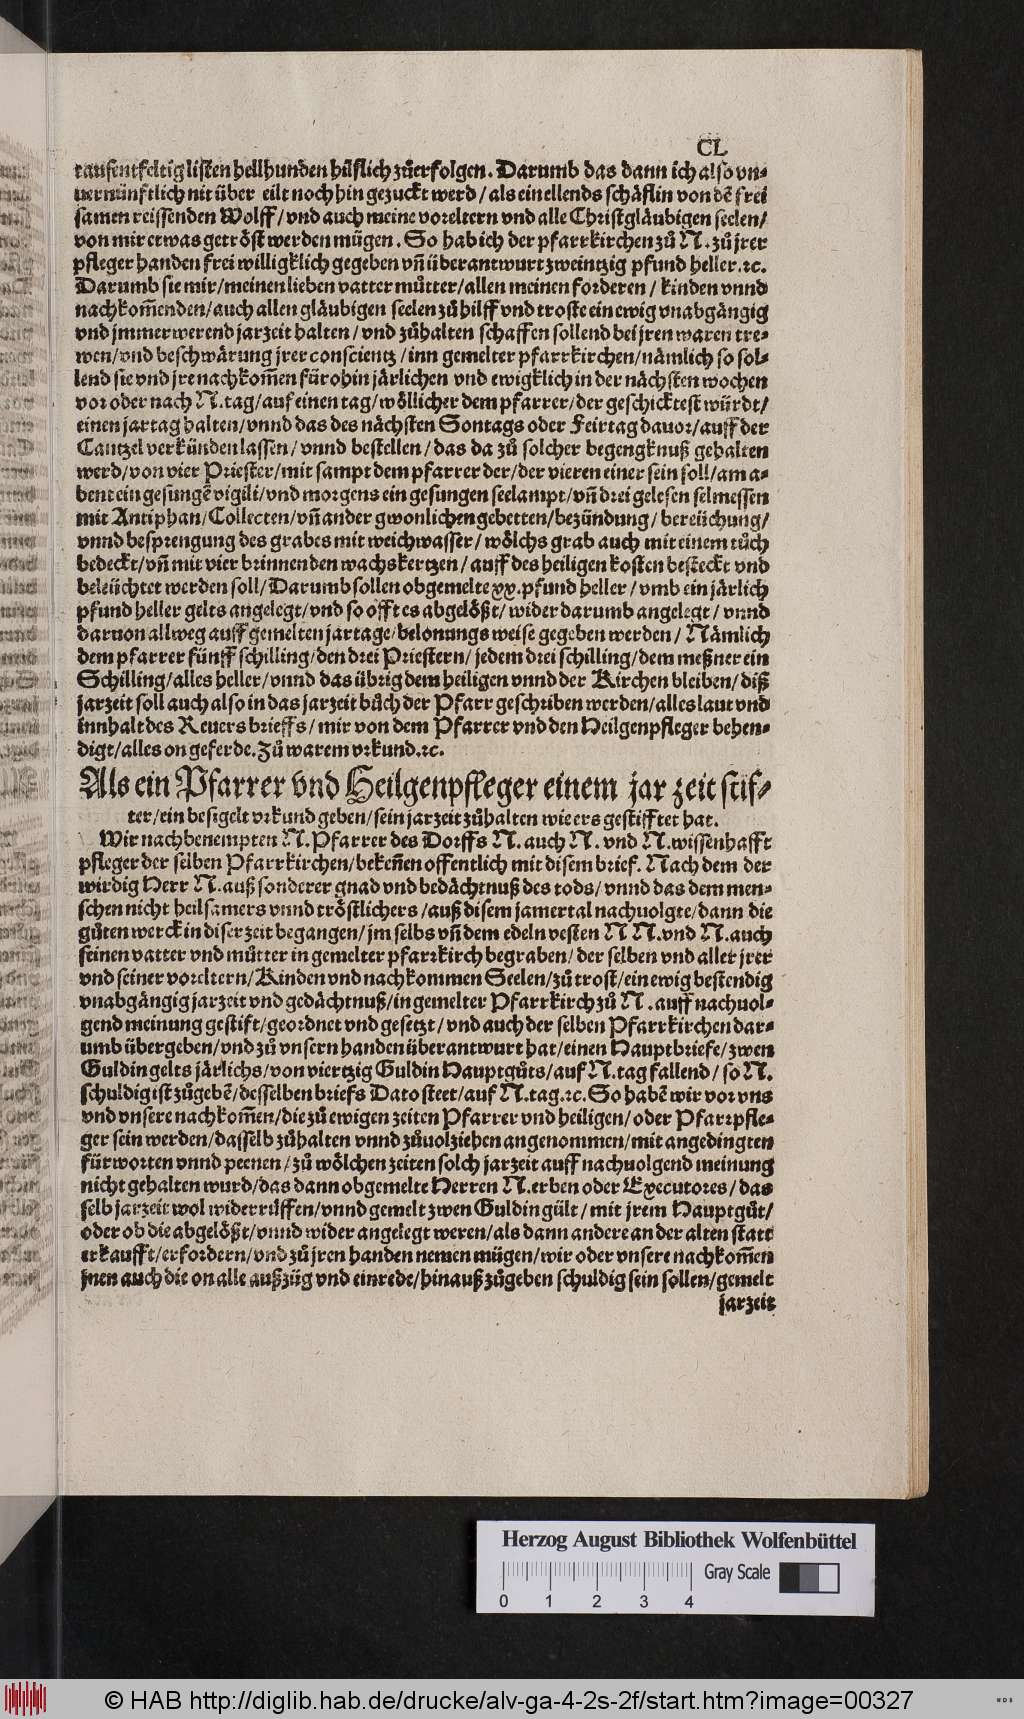 CL
tausentfeltig listen hellhunden hilflich zůerfolgen. Darumb das dann ich also vn-
uernünftlich nit über eilt noch hin gezuckt werd / als ein ellends schäflin von dẽ frei
samen reissenden Wolff / vnd auch meine voreltern vnd alle Christgläubigen seelen/
von mir etwas getröst werden mügen. So hab ich der pfarrkirchen zů N. zů jrer
pfleger handen frei williglich gegeben vñ überantwurt zweintzig pfund heller.ꝛc.
Darumb sie mir/meinen lieben vatter můtter/allen meinen forderen / kinden vnnd
nachkom̃enden/auch allen gläubigen seelen zů hilff vnd troste ein ewig vnabgängig
vnd jmmer werend jarzeit halten / vnd zůhalten schaffen sollend bei jren waren tre-
wen/vnd beschwärung jrer conscientz / inn gemelter pfarrkirchen/nämlich so sol-
lend sie vnd jre nachkom̃en fürohin järlichen vnd ewigklich in der nächsten wochen
vor oder nach N.tag/auf einen tag/wöllicher dem pfarrer/der geschicktest würdt/
einen jartag halten/vnnd das des nächsten Sontags oder Feirtag dauor/auff der
Cantzel verkünden lassen / vnnd bestellen / das da zů solcher begengknuß gehalten
werd/von vier Priester/mit sampt dem pfarrer der/der vieren einer sein soll/am a-
bent ein gesungẽ vigili/vnd morgens ein gesungen seelampt/vñ drei gelesen selmessen
mit Antiphan/Collecten/vñ ander gwonlichen gebetten/bezündung/ bereüchung/
vnnd besprengung des grabes mit weichwasser/ wölchs grab auch mit einem tůch
bedeckt/vñ mit vier brinnenden wachskertzen/ auff des heiligen kosten besteckt vnd
beleüchtet werden soll/Darumb sollen obgemelte xx.pfund heller / vmb ein järlich
pfund heller gelts angelegt/vnd so offt es abgelößt/ wider darumb angelegt / vnnd
daruon allweg auff gemelten jartage/belonungs weise gegeben werden / Nämlich
dem pfarrer fünff schilling/den drei Priestern/ jedem drei schilling/dem meßner ein
Schilling/alles heller/vnnd das übrig dem heiligen vnnd der Kirchen bleiben/ diß
jarzeit soll auch also in das jarzeit bůch der Pfarr geschriben werden/alles laut vnd
innhalt des Reuers brieffs / mir von dem Pfarrer vnd den Heilgenpfleger behen-
digt/alles on geferde. Zů warem vrkund.ꝛc.
Als ein Pfarrer vnd Heilgenpfleger einem jar zeit stif-
ter/ein besigelt vrkund geben/sein jarzeit zůhalten wie ers gestifftet hat.
Wir nachbenempten N. Pfarrer des Dorffs N. auch N. vnd N.wissenhafft
pfleger der selben Pfarrkirchen/bekeñen offentlich mit disem brief. Nach dem der
wirdig Herr N.auß sonderer gnad vnd bedächtnuß des tods/ vnnd das dem men-
schen nicht heilsamers vnnd tröstlichers /auß disem jamertal nachuolgte/dann die
gůten werck in diser zeit begangen/jm selbs vñ dem edeln vesten N N.vnd N.auch
seinen vatter vnd můtter in gemelter pfarrkirch begraben/ der selben vnd aller jrer
vnd seiner voreltern/Kinden vnd nachkommen Seelen/zů trost/ein ewig bestendig
vnabgängig jarzeit vnd gedächtnuß/in gemelter Pfarrkirch zů N. auff nachuol-
gend meinung gestift/geordnet vnd gesetzt/ vnd auch der selben Pfarrkirchen dar-
umb übergeben/vnd zů vnsern handen überantwurt hat/einen Hauptbriefe/zwen
Guldin gelts järlichs/von viertzig Guldin Hauptgůts/auf N.tag fallend/ so N.
schuldig ist zůgebẽ/desselben briefs Dato steet/auf N.tag.ꝛc. So habẽ wir vor vns
vnd vnsere nachkom̃en/die zů ewigen zeiten Pfarrer vnd heiligen/ oder Pfarrpfle-
ger sein werden/dasselb zůhalten vnnd zůuolziehen angenommen/mit angedingten
fürworten vnnd peenen / zů wölchen zeiten solch jarzeit auff nachuolgend meinung
nicht gehalten wurd/das dann obgemelte Herren N.erben oder Executores/ das
selb jarzeit wol widerrůffen/vnnd gemelt zwen Guldin gült / mit jrem Hauptgůt/
oder ob die abgelößt/vnnd wider angelegt weren/als dann andere an der alten statt
erkaufft/erfordern/vnd zů jren handen nemen mügen/wir oder vnsere nachkom̃en
jnen auch die on alle außzüg vnd einrede/hinauß zůgeben schuldig sein sollen/gemelt
jarzeit
Herzog August Bibliothek Wolfenbüttel
Gray Scale
0 1 2 3 4
© HAB http://diglib.hab.de/drucke/alv-ga-4-2s-2f/start.htm?image=00327